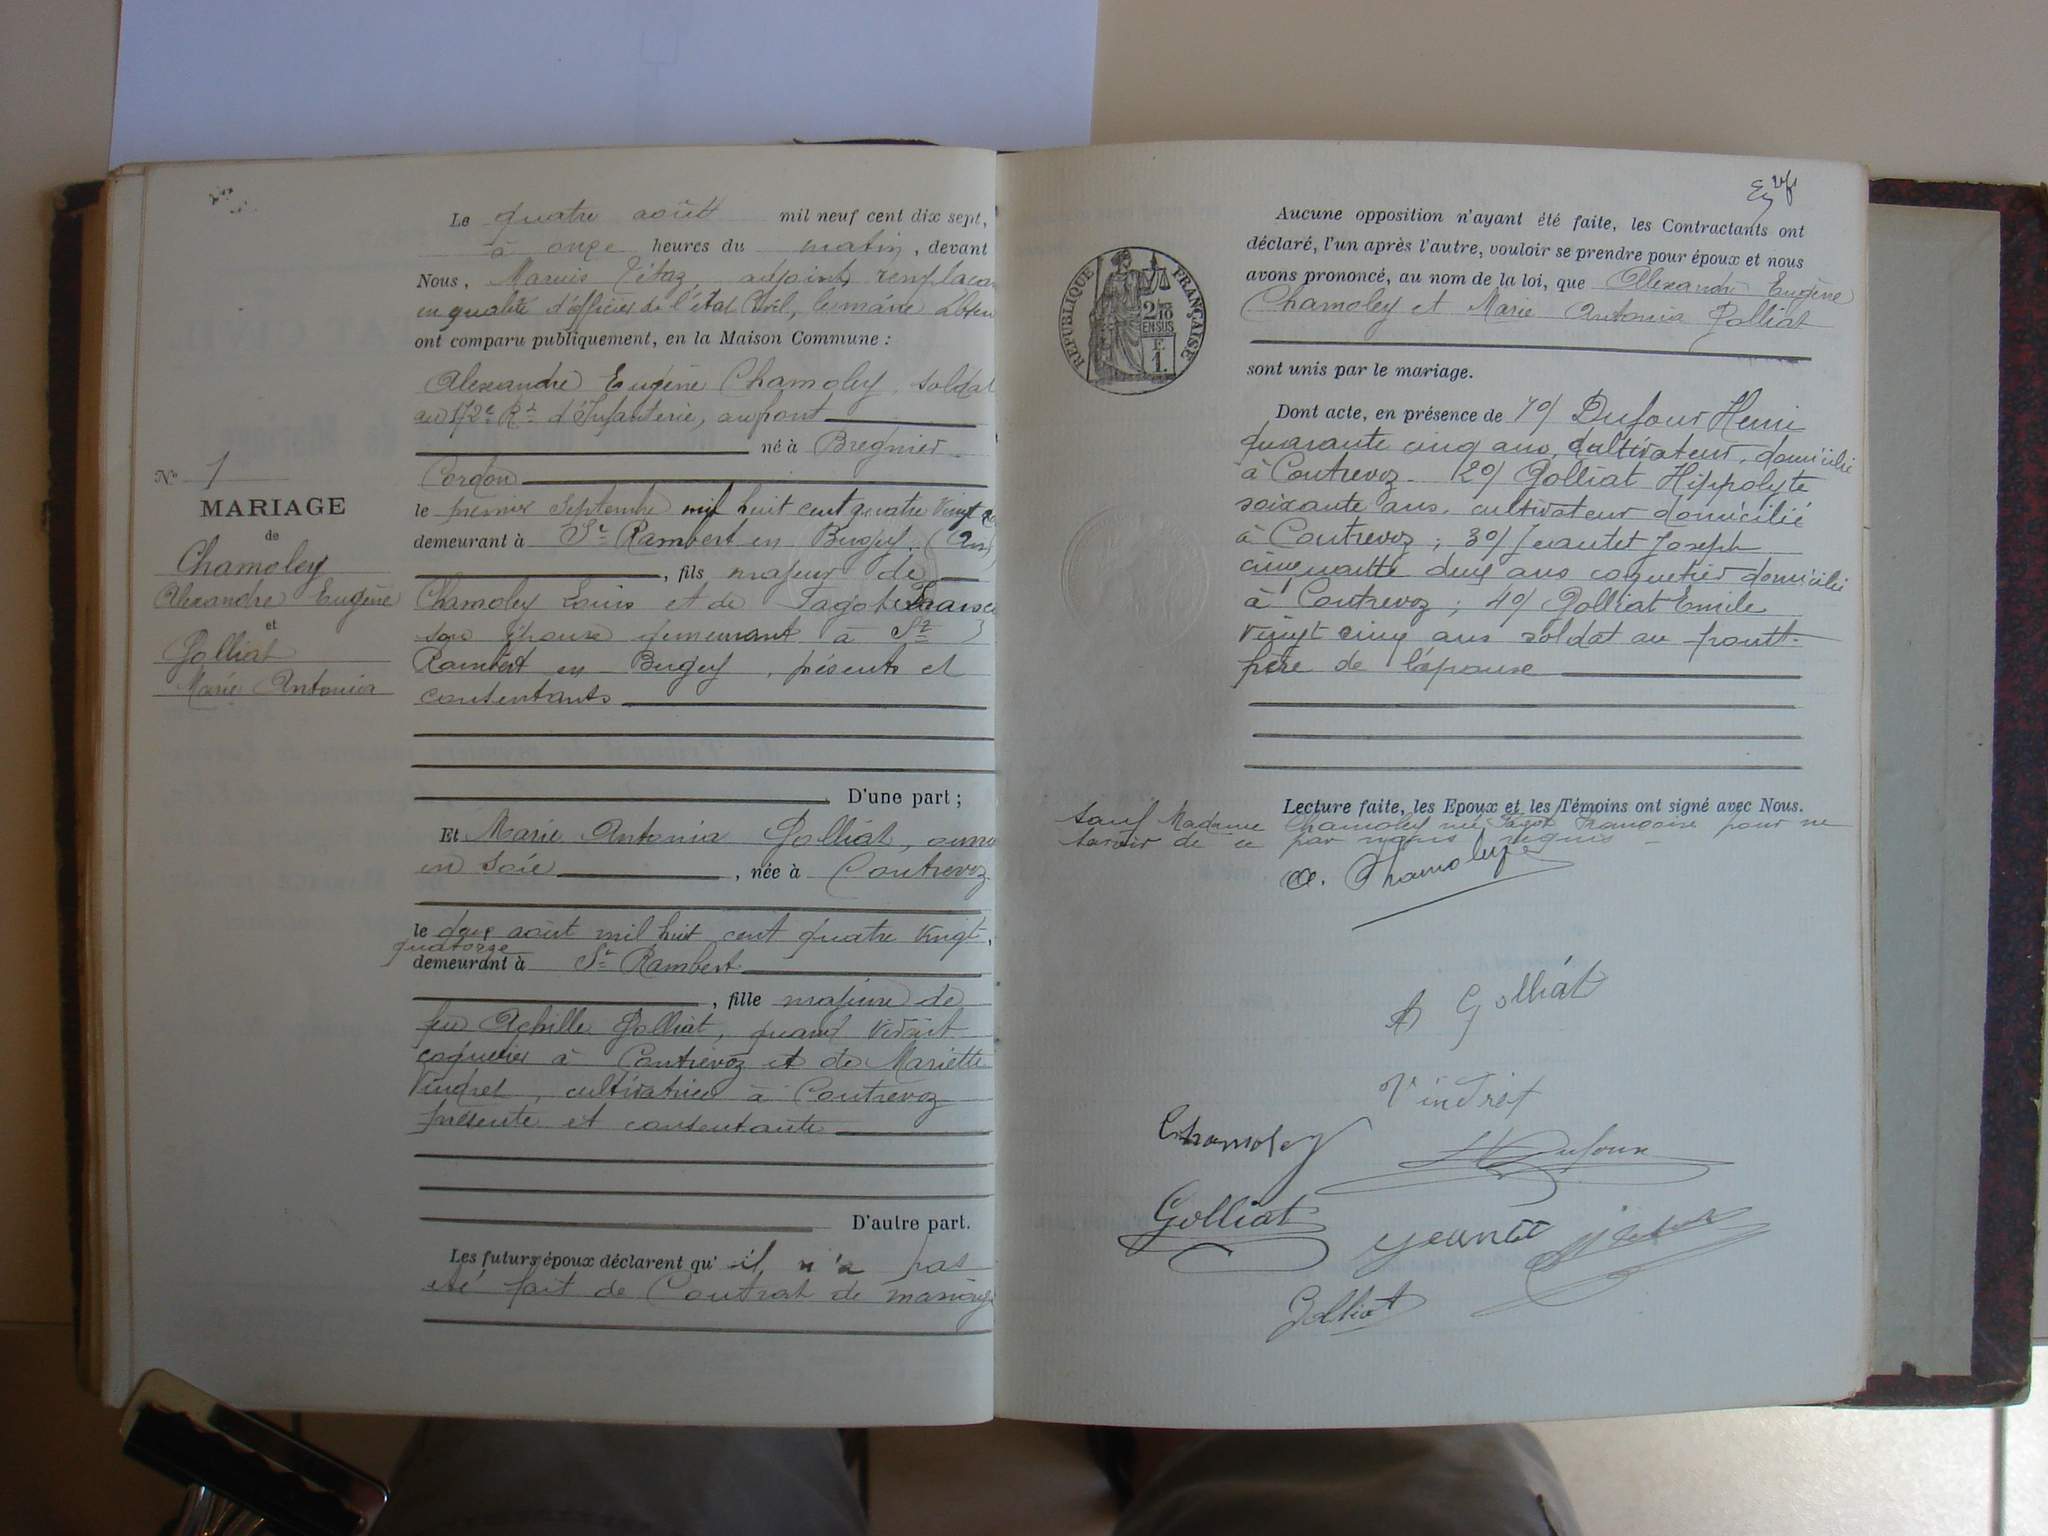 Le quatre août mil neuf cent dix sept,
à onze heures du matin, devant
Nous, adjoint remplaçan
en qualité d'officier de l'état Civil, le maire absen
ont comparu publiquement, en la Maison Commune :
Alexandre Eugène Chamoley, soldat
au 172e Rt d'Infanterie, au front
né à Bregnier
Cordon
le premier Septembre mil huit cent quatre vingt
demeurant à St Rambert en Bugey, (Ain)
, fils majeur de
Chamoley Louis et de Tagot
son épouse demeurant à St
Rambert en Bugey, présents et
consentants
D'une part ;
Et Marie Antonia Golliat,
en soie, née à Contrevoz
le deux août mil huit cent quatre vingt
quatorze
demeurant à St Rambert
, fille majeure de
feu Achille Golliat, quand vivait
coquetier à Contrevoz et de Mariette
Vindret, cultivatrice à Contrevoz
présente et consentante
D'autre part.
Les futurs époux déclarent qu'il n'a pas
été fait de Contrat de mariage
No 1
MARIAGE
de
Chamoley
Alexandre Eugène
et
Golliat
Marie Antonia
Aucune opposition n'ayant été faite, les Contractants ont
déclaré, l'un après l'autre, vouloir se prendre pour époux et nous
avons prononcé, au nom de la loi, que Alexandre Eugène
Chamoley et Marie Antonia Golliat
sont unis par le mariage.
Dont acte, en présence de 1o/ Dufour Henri
quarante cinq ans, cultivateur, domicilié
à Contrevoz. 2o/ Golliat Hippolyte
soixante ans, cultivateur domicilié
à Contrevoz ; 3o/ Jeantet Joseph
cinquante deux ans coquetier domicilié
à Contrevoz ; 4o/ Golliat Emile
vingt cinq ans soldat au front
frère de l'épouse
Lecture faite, les Epoux et les Témoins ont signé avec Nous.
Sauf Madame Chamoley née Tagot Françoise pour ne
savoir de ce par nous requis
RÉPUBLIQUE FRANÇAISE
2/10
EN SUS
1.
A. Chamoley
A Golliat
Vindret
Chamoley
H Dufour
Golliat
Jeantet
Golliat